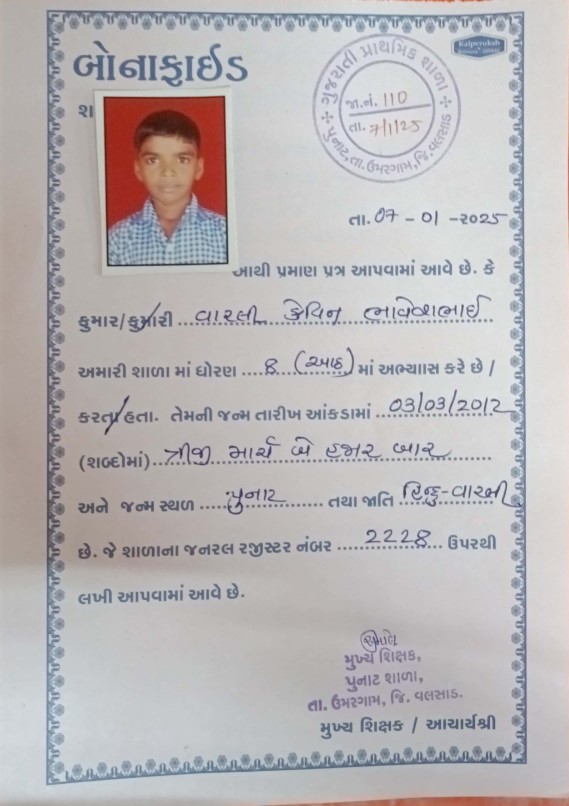 બોનાફાઈડ
Kalpvruksh
ગુજરાતી પ્રાથમિક શાળા
જા.નં. 110
તા. 7/1/25
પુનાટ, તા. ઉમરગામ, જિ. વલસાડ
શ
તા. 07 - 01 - ૨૦૨૫
આથી પ્રમાણ પત્ર આપવામાં આવે છે. કે
કુમાર/કુમારી વારલી કેવિન ભાવેશભાઈ
અમારી શાળા માં ધોરણ 8 (આઠ) માં અભ્યાસ કરે છે /
કરતા હતા. તેમની જન્મ તારીખ આંકડામાં 03/03/2012
(શબ્દોમાં) ત્રીજી માર્ચ બે હજાર બાર
અને જન્મ સ્થળ પુનાટ તથા જાતિ હિન્દુ-વારલી
છે. જે શાળાના જનરલ રજીસ્ટર નંબર 2228 ઉપરથી
લખી આપવામાં આવે છે.
મુખ્ય શિક્ષક,
પુનાટ શાળા,
તા. ઉમરગામ, જિ. વલસાડ.
મુખ્ય શિક્ષક / આચાર્યશ્રી